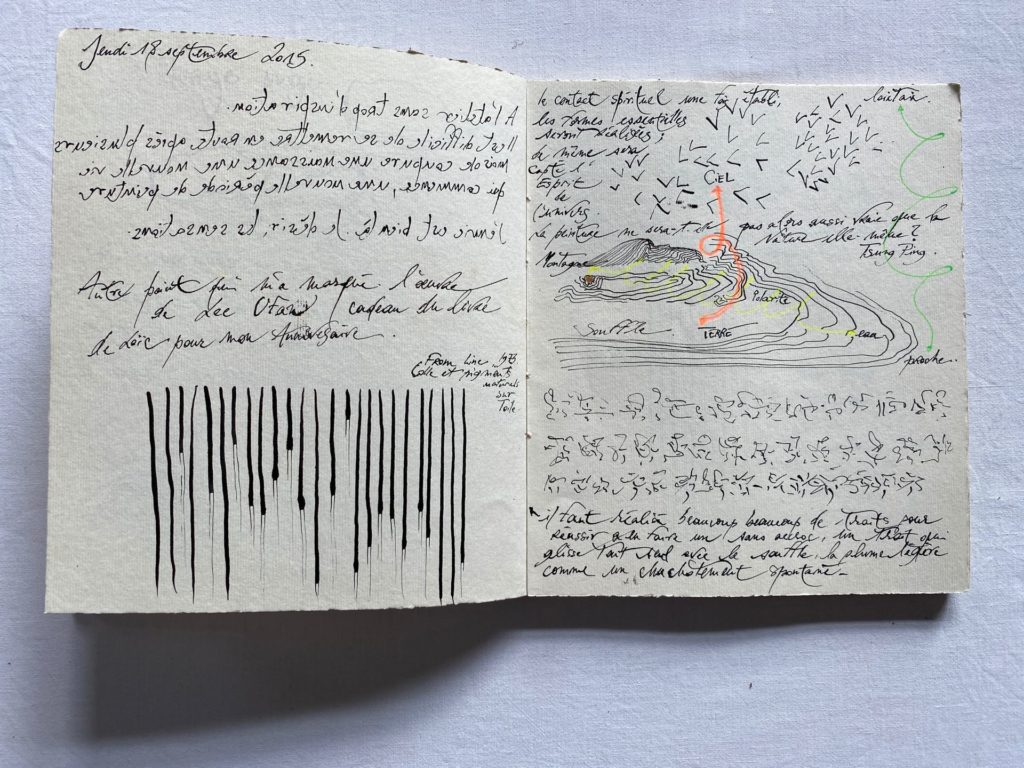 Jeudi 18 septembre 2015.
A l'atelier sans trop d'inspiration.
Il est difficile de se remettre en route après plusieurs
mois de coupure une naissance une nouvelle vie
qui commence, une nouvelle période de peinture
est bien là. Le désir, les sensations.
Autre point qui m'a marqué l'œuvre
de Lee Ufan cadeau du livre
de Loïc pour mon Anniversaire.
From line 1978
Colle et pigments
naturels
sur
Toile
le contact spirituel une fois établi,
les formes essentielles
seront réalisées;
de même sera
capté l'
Esprit
de
l'univers.
La peinture ne sera-t-elle pas alors aussi vraie que la
Nature elle-même?
Tsung Ping.
lointain.
CIEL
Montagne
Polarité
Souffle
TERRE
eau
proche..
il faut réaliser beaucoup beaucoup de traits pour
réussir à en faire un sans accroc, un trait qui
glisse tout seul avec le souffle, la plume légère
comme un chuchotement spontané-